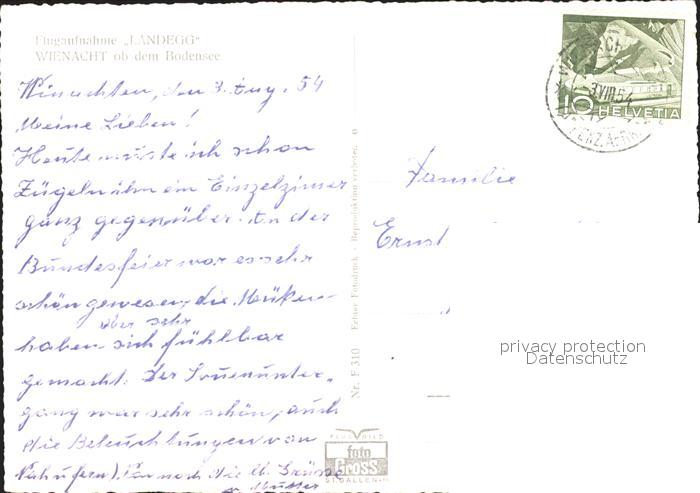 Flugaufnahme „LANDEGG"
WIENACHT ob dem Bodensee
Wienachten, den 3. Aug. 54
Meine Lieben!
Heute musste ich schon
Zügeln ein Einzelzimmer
ganz gegenüber. An der
Bundesfeier war es sehr
schön gewesen, die Müken
aber sehr
haben sich fühlbar
gemacht. Der Sonnenunter-
gang war sehr schön, auch
die Beleuchtungen von
noch die lb. Grüsse
Mutter
Nr. F 310 Echter Fotodruck - Reproduktion verboten.
FLUGBILD
foto
Gross
ST. GALLEN
3.VIII.54
10 HELVETIA
Familie
Ernst
privacy protection
Datenschutz